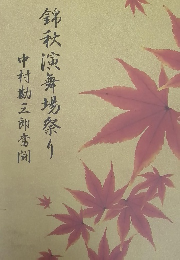 錦秋演舞場祭り
中村勘三郎奮闘